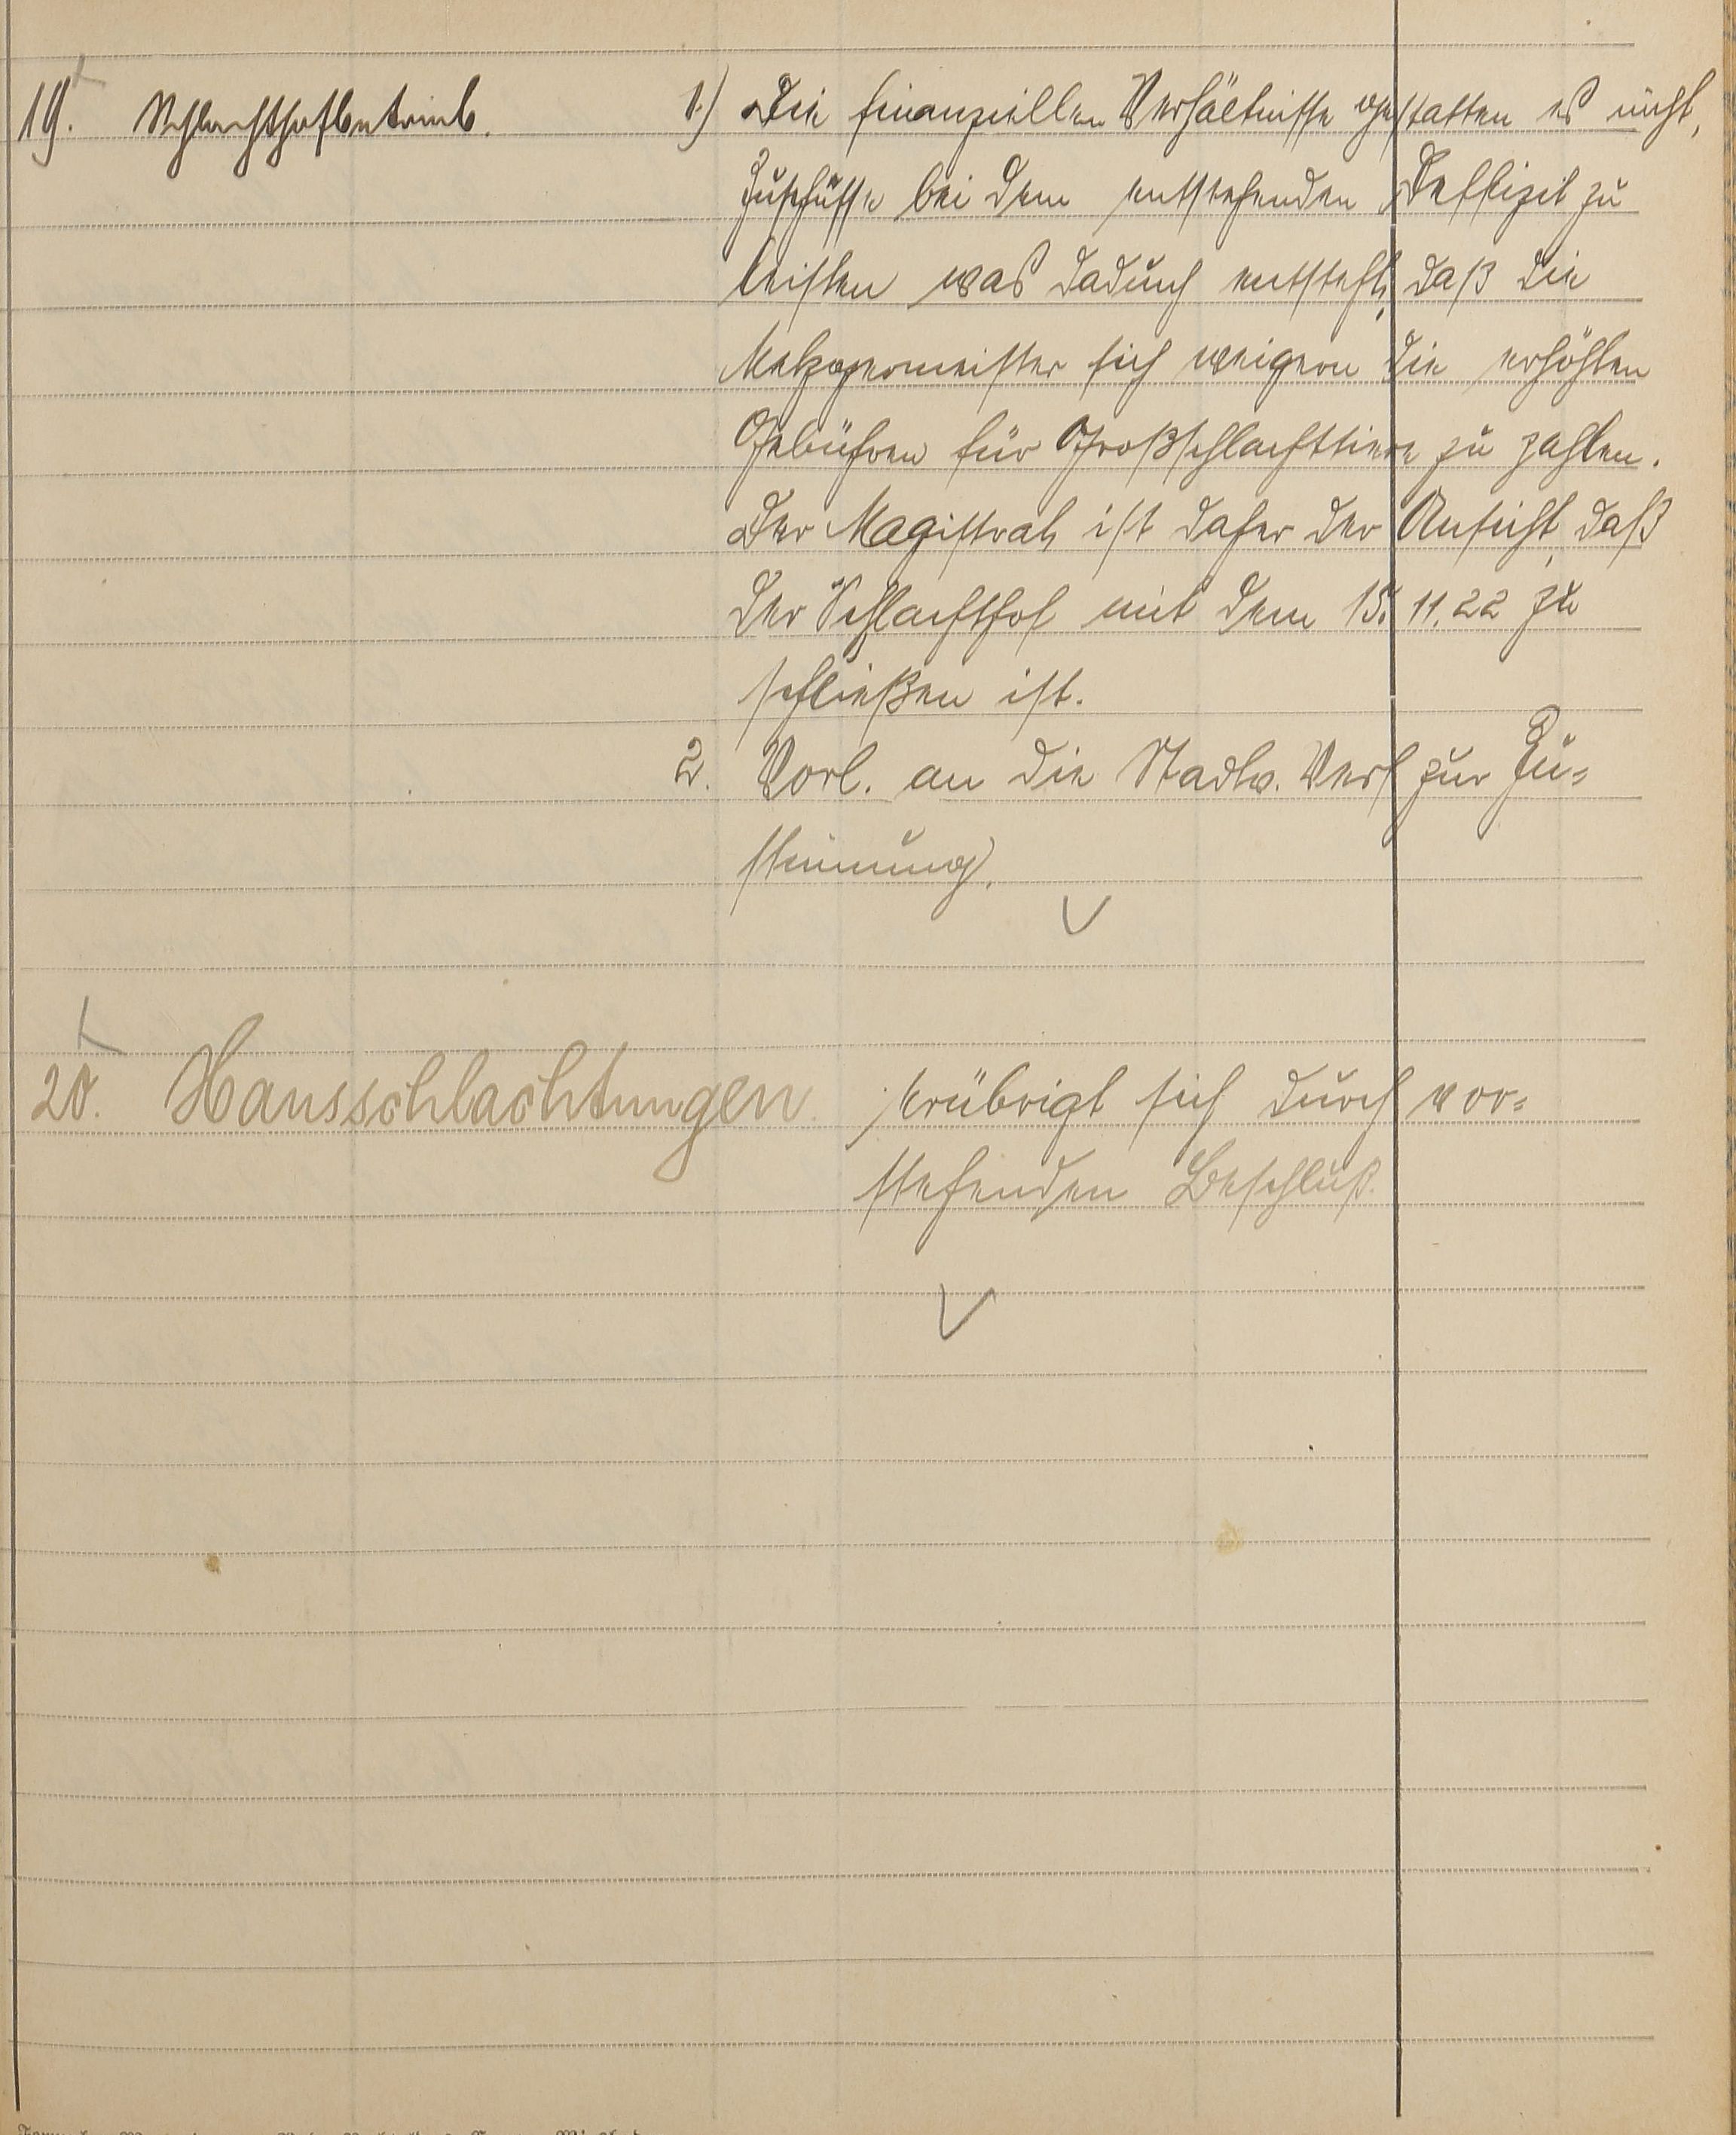 19. Schlachthofbetrieb.
1.) Die finanziellen Verhältnisse gestatten es nicht,
Zuschüsse bei dem entstehenden Deffizit zu
leisten was dadurch entsteht, daß die
Metzgermeister sich weigern die erhöhten
Gebühren für Großschlachttiere zu zahlen.
Der Magistrat ist daher der Ansicht, daß
der Schlachthof mit dem 15. 11. 22 zu
schließen ist.
2. Vorl. an die Stadtv. Vers zur Zu-
stimmung.
20. Hausschlachtungen.
erübrigt sich durch vor-
stehenden Beschluß.